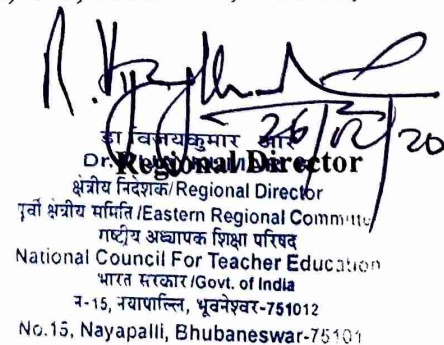 R. Vijaykumar
26/12/20
डा विजयकुमार आर
Regional Director
Dr.
क्षेत्रीय निदेशक/Regional Director
पूर्वी क्षेत्रीय समिति /Eastern Regional Committ
राष्ट्रीय अध्यापक शिक्षा परिषद
National Council For Teacher Education
भारत सरकार/Govt. of India
न-15, नयापल्लि, भूवनेश्वर-751012
No.15, Nayapalli, Bhubaneswar-75101